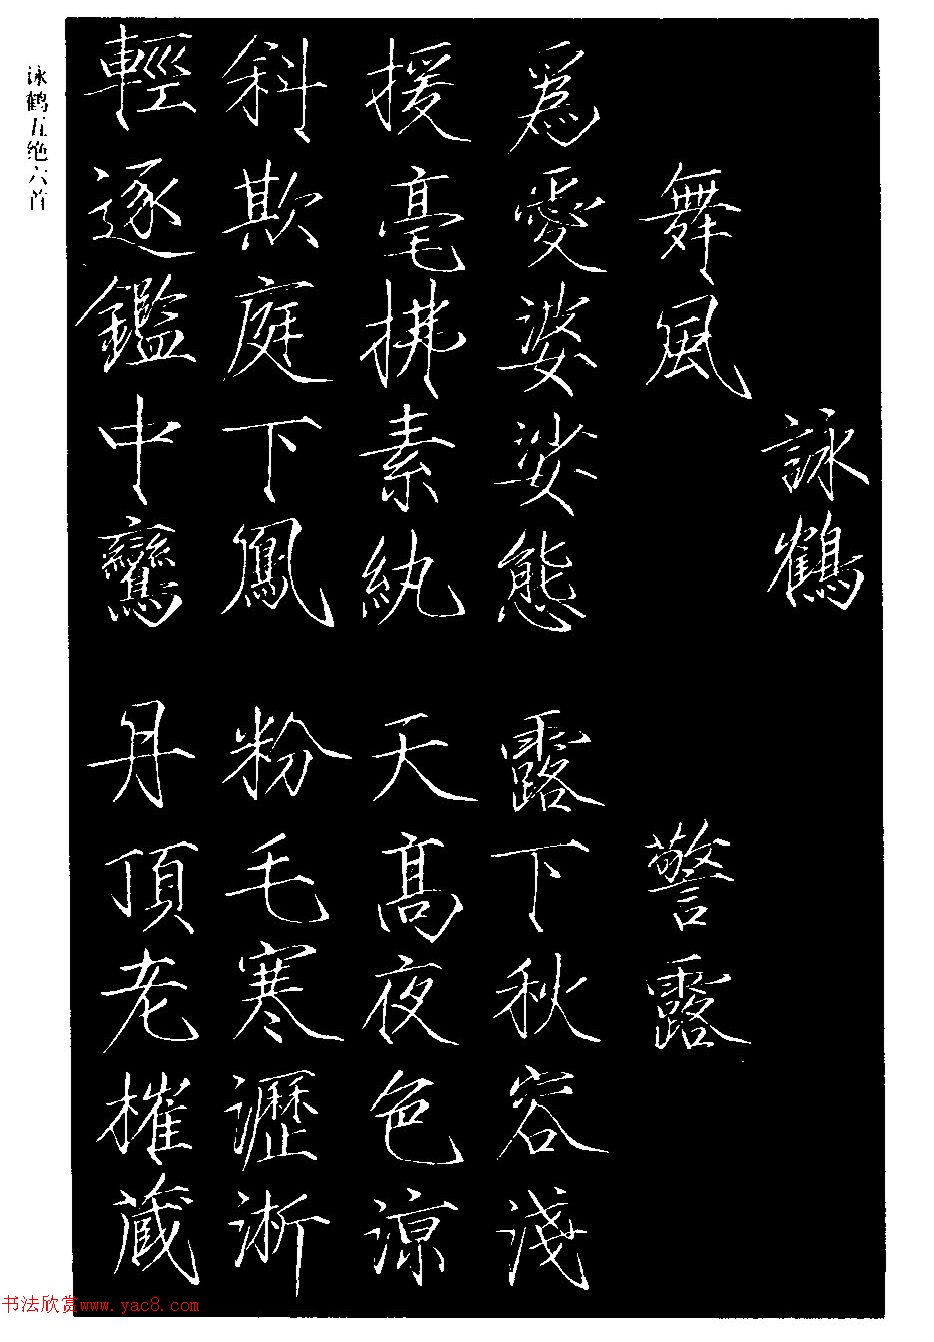 詠鶴
舞風
為愛婆娑態
援毫拂素紈
斜欺庭下鳳
輕逐鑑中鸞
警露
露下秋容淺
天高夜色涼
粉毛寒瀝淅
丹頂老摧藏
咏鹤五绝六首
书法欣赏www.yac8.com